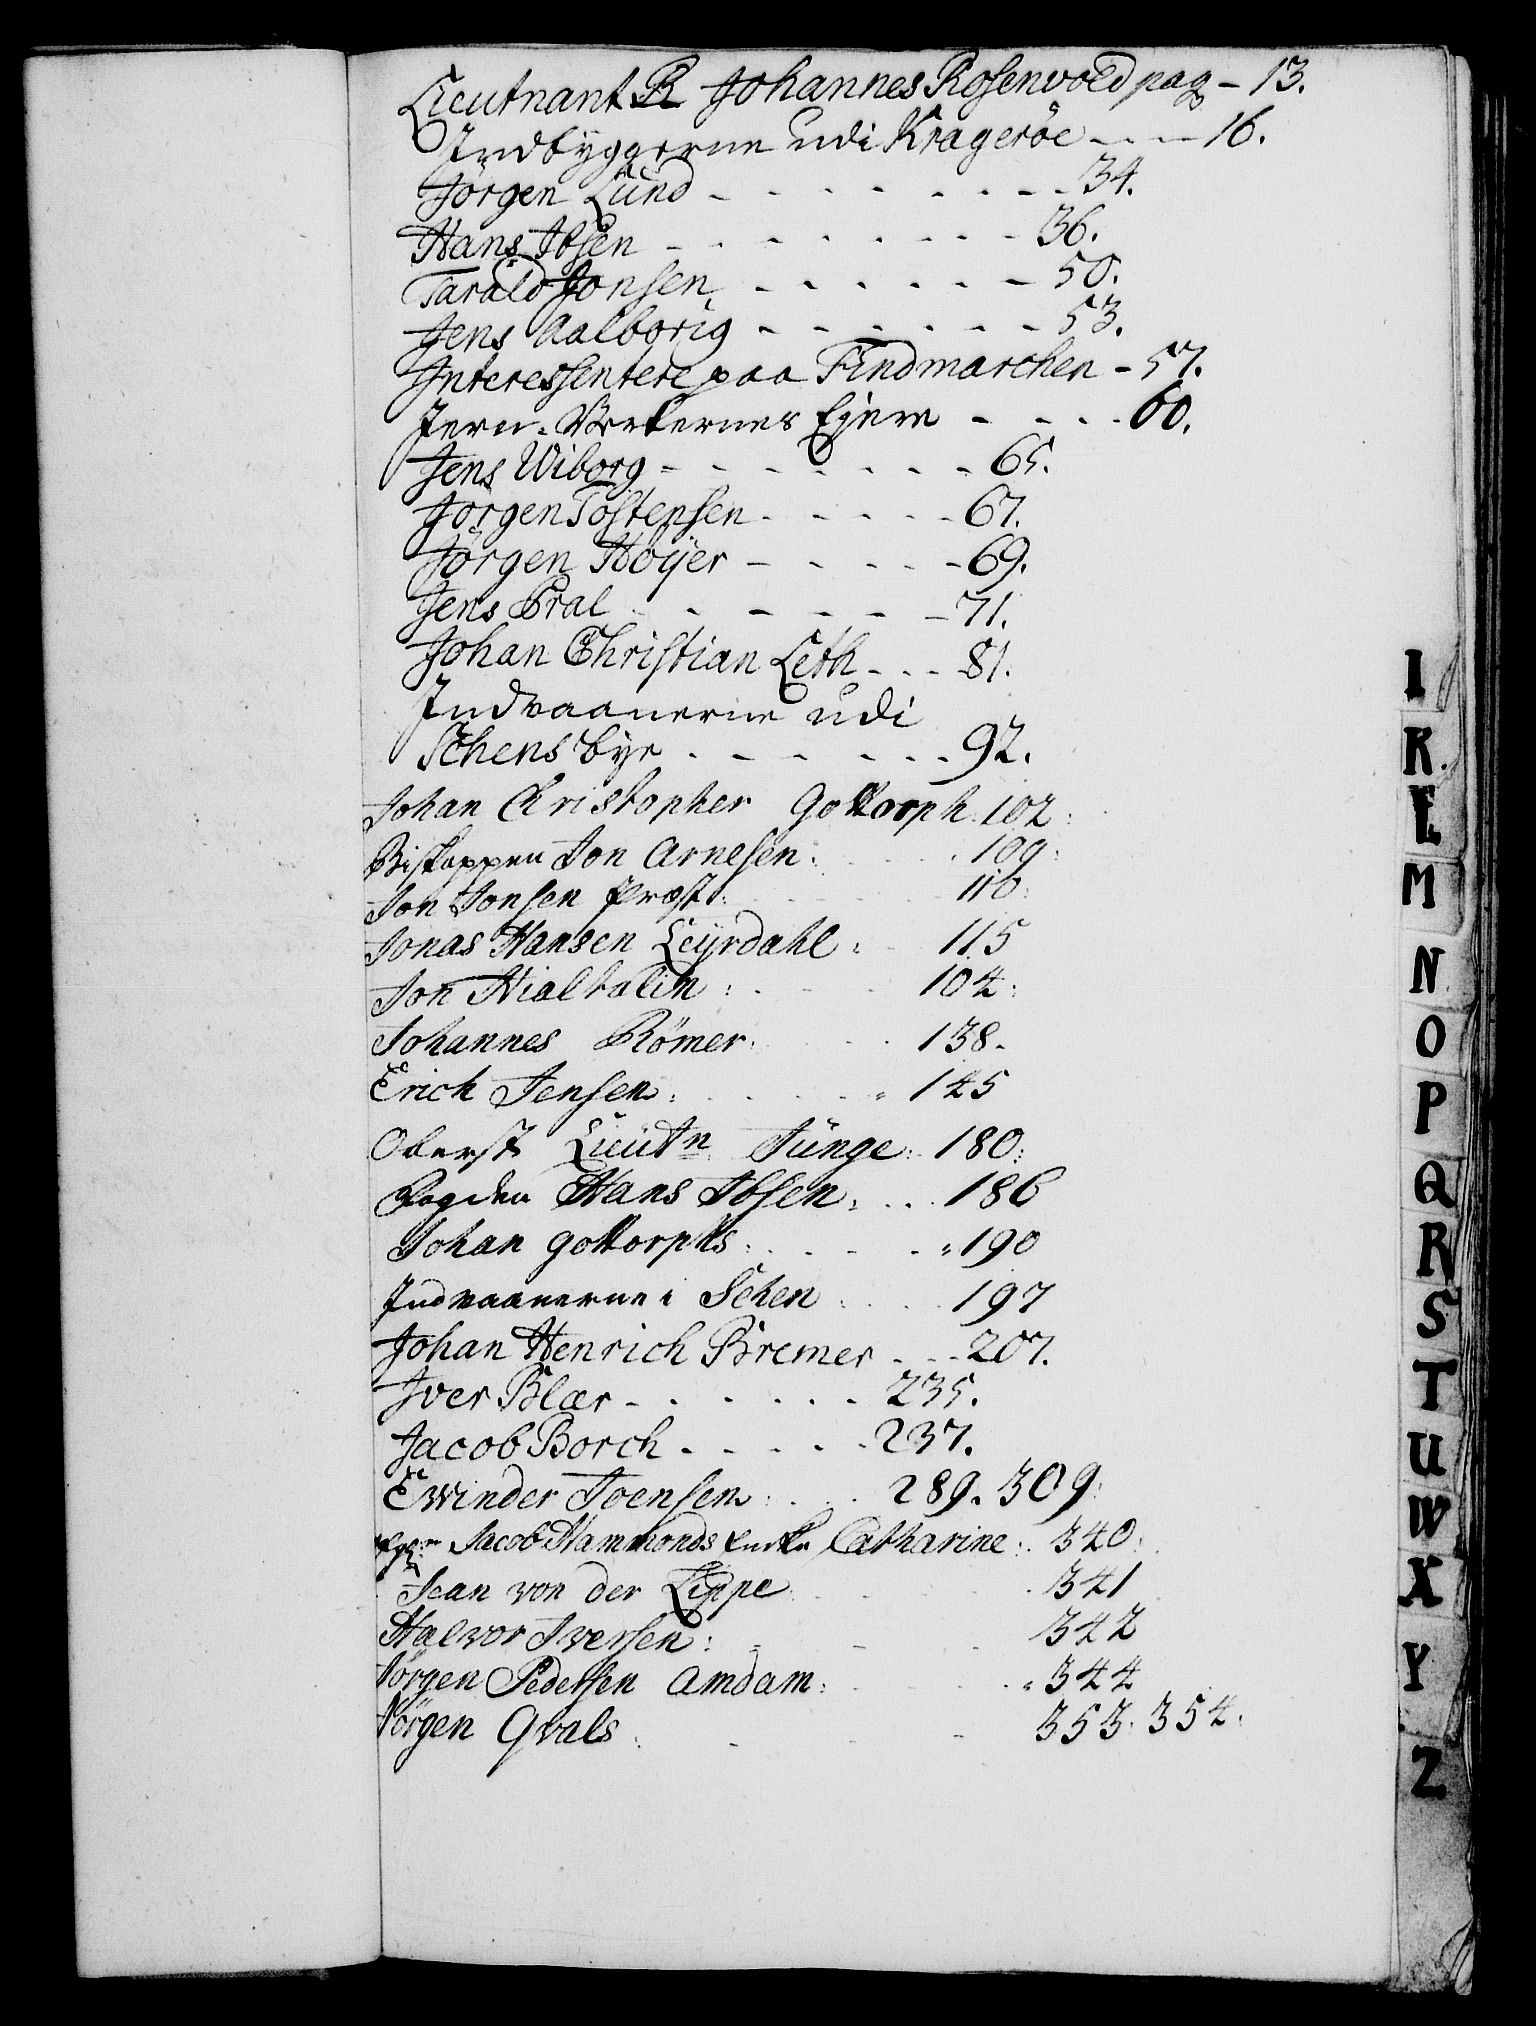 Lieutnant R Johannes Rosenvold pag - 13.
Indbyggerne udi Kragerøe - - - 16.
Jörgen Lund - - - - - - - - 34.
Hans Ibsen - - - - - - - - 36.
Tarald Jonsen - - - - - - 50.
Jens Aalborig - - - - - - 53.
Interessentere paa Findmarchen - 57.
Jern-Verkernes Ejere - - - - 60.
Jens Wiborg - - - - - - - 65.
Jörgen Tostensen - - - - - 67.
Jörgen Höÿer - - - - - 69.
Jens Pral - - - - - - 71.
Johan Christian Leth - - - 81.
Indvaanerne udi
Schens bye - - - - - - 92.
Johan Christopher Gottorph 102.
Biskoppen Jon Arnesen. 109.
Jon Jonsen Præst: 110.
Jonas Hansen Leyrdahl: 115
Jon Hialtalin: 104.
Johannes Römer. 138.
Erich Jensen. 145
Oberst Lieutn Junge. 180.
Fogden Hans Ibsen. 186
Johan Gottorphs. 190
Indvaanerne i Schen 197
Johan Henrich Bremer - - - 207.
Iver Blær - - - - - - 235.
Jacob Borch - - - - - 237.
Ewinder Joensen. 289. 309.
Jacob Hammonds Enke Catharine: 340.
Jean von der Lippe 341
Halvor Iversen: 342
Jörgen Pedersen Amdam: 344
Jörgen Qvals: 353. 354.
I
K
L
M
N
O
P
Q
R
S
T
U
W
X
Y
Z